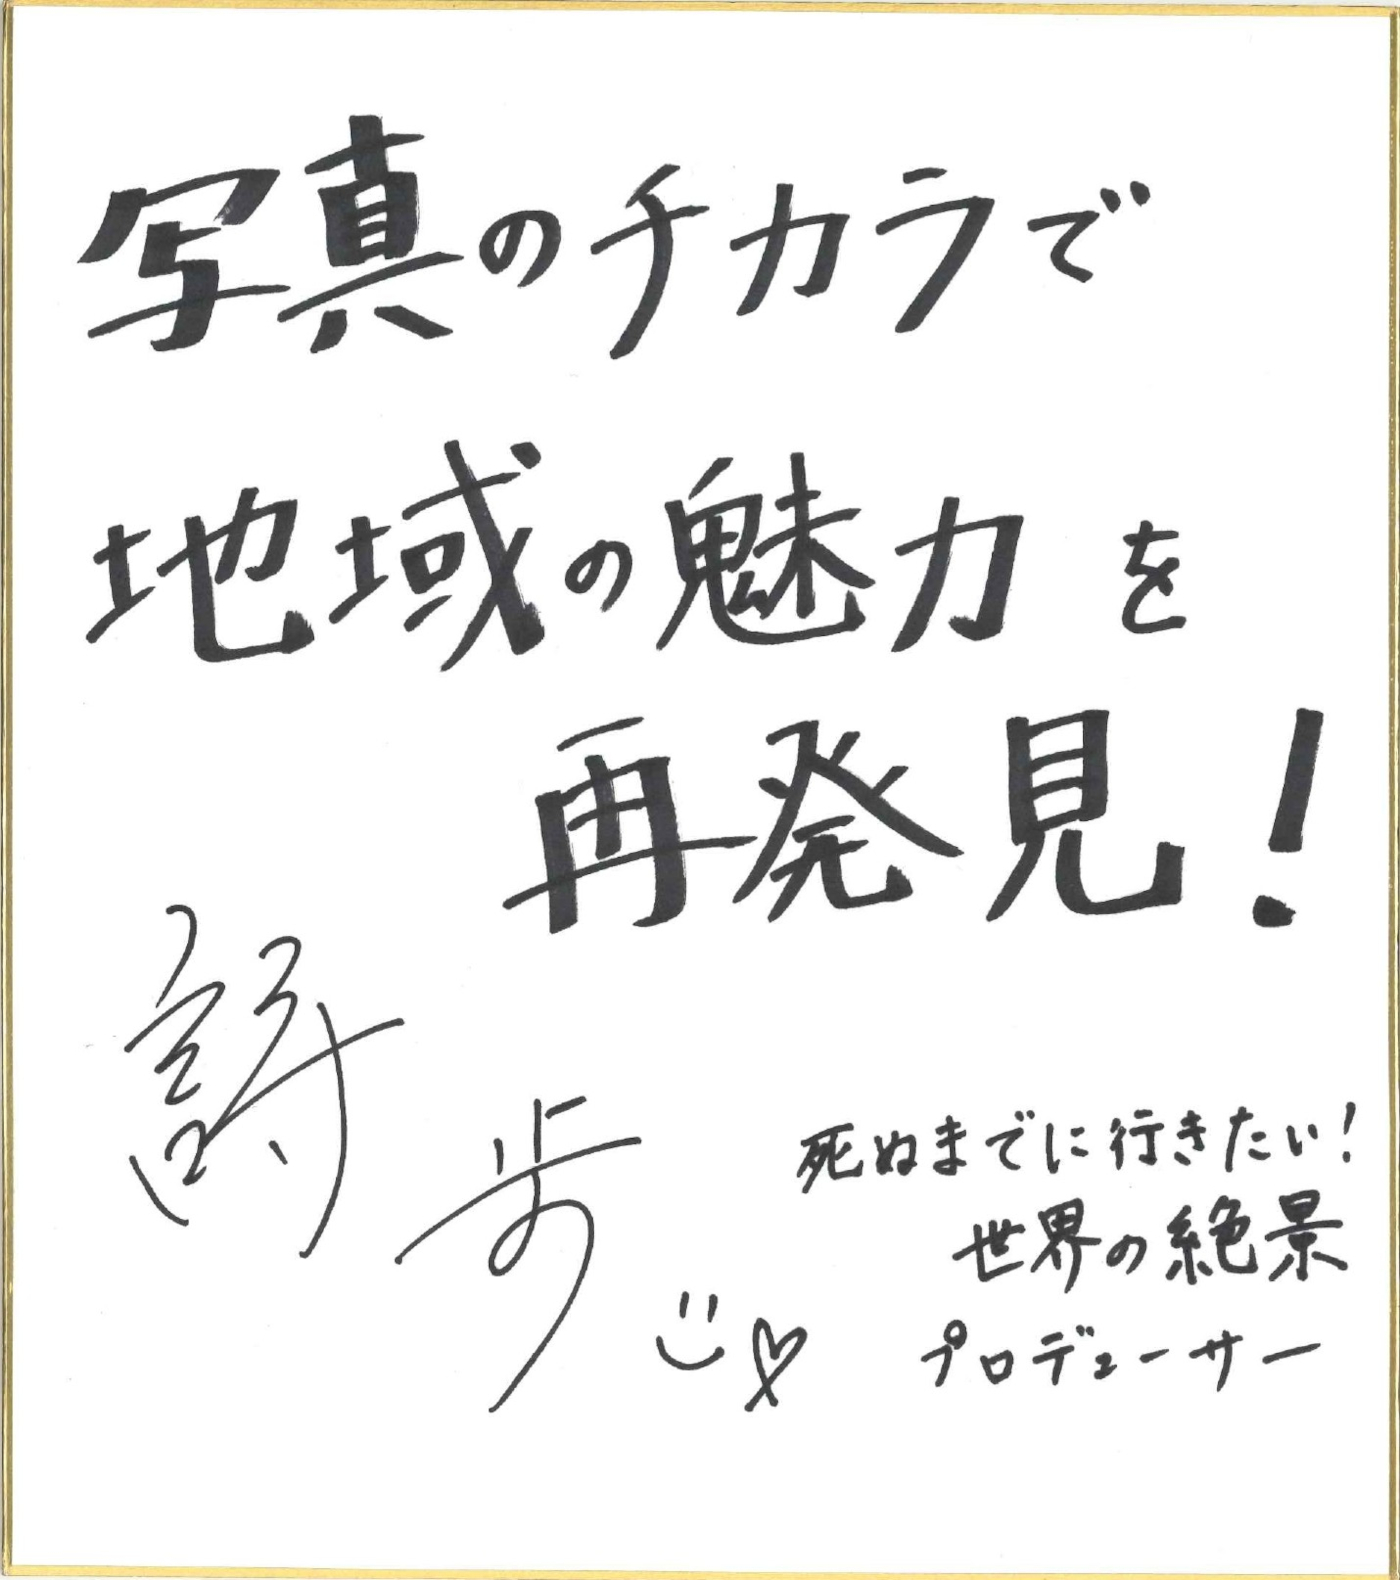 写真のチカラで
地域の魅力を
再発見!
詩歩
死ぬまでに行きたい!
世界の絶景
プロデューサー